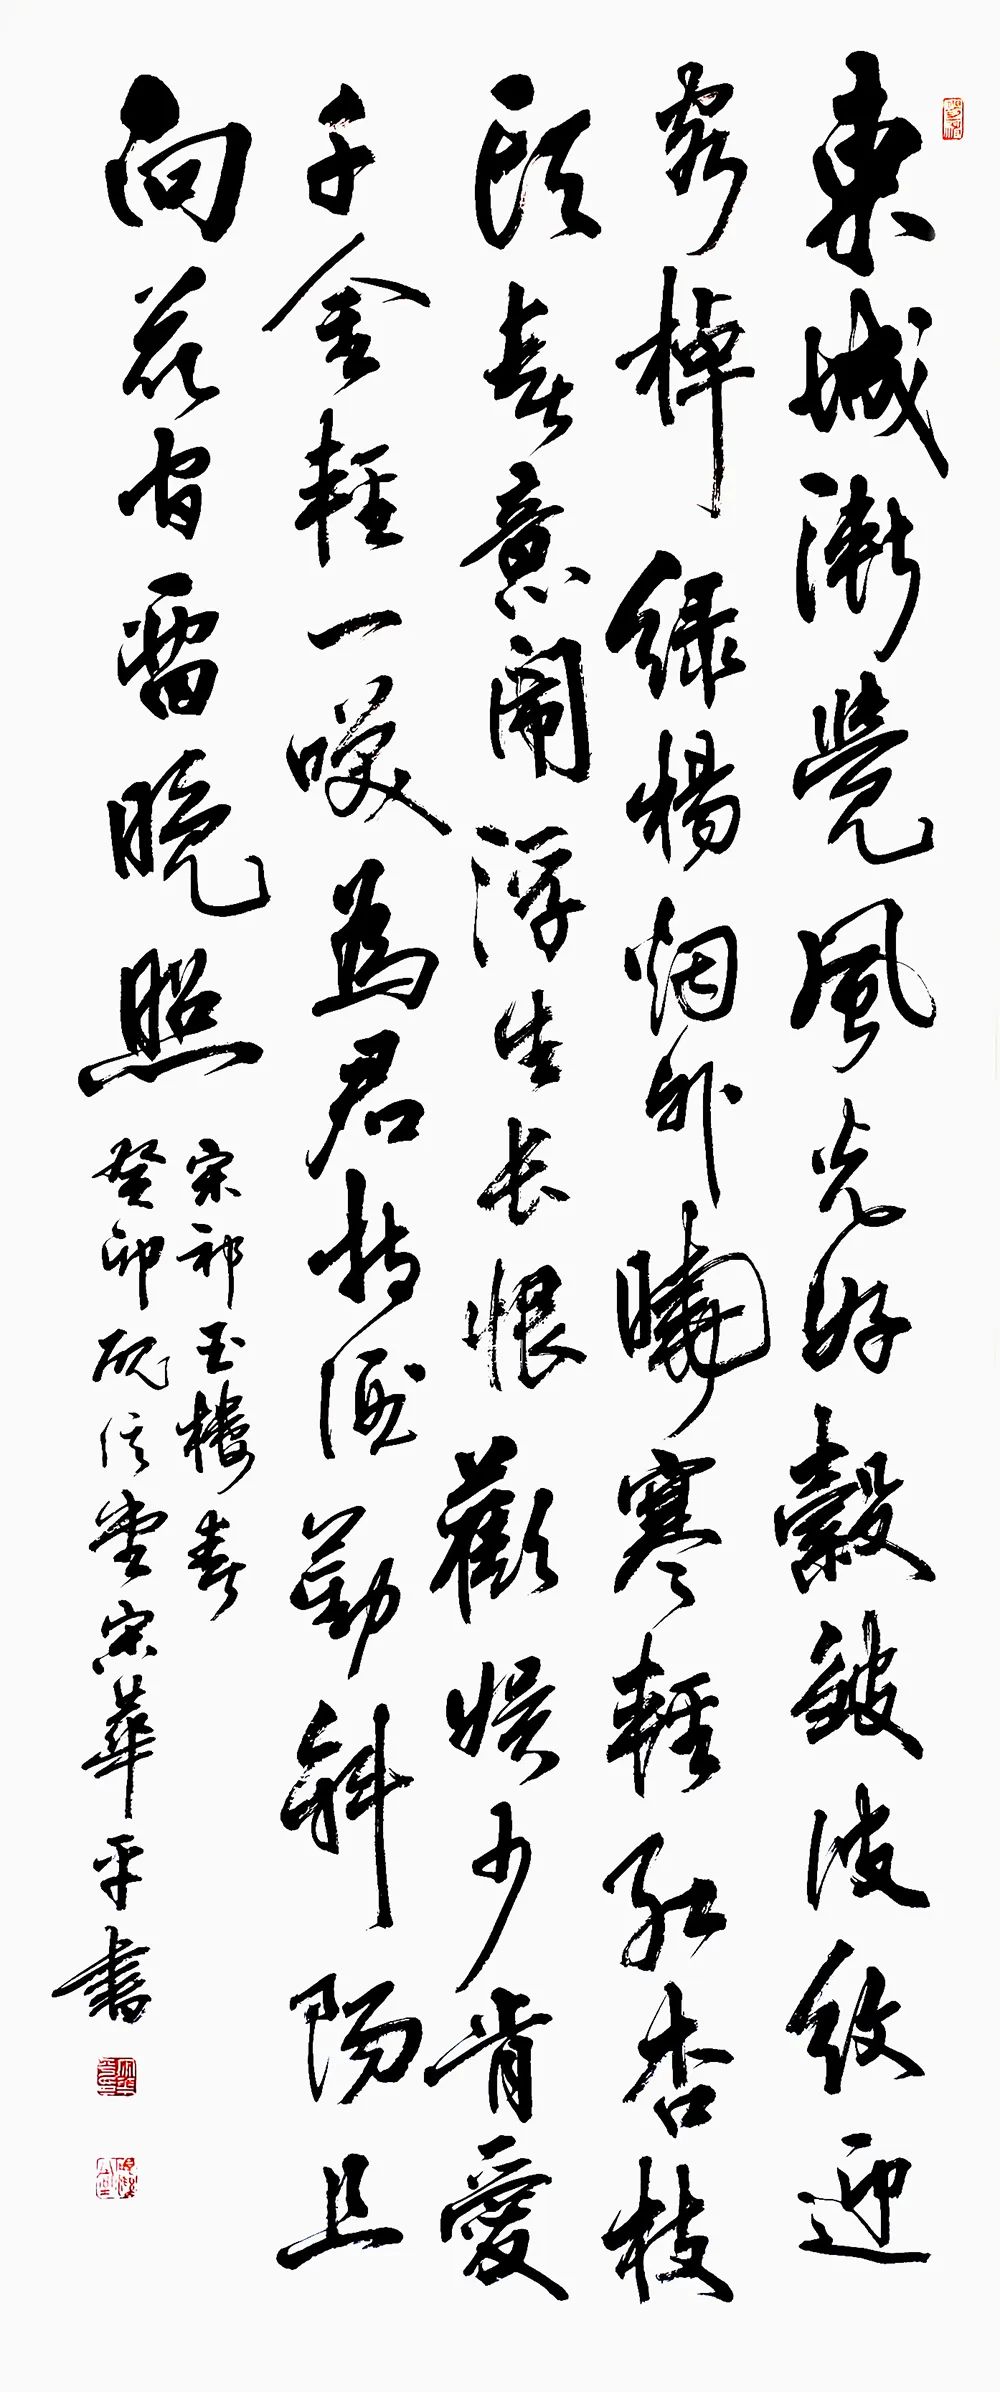 東城漸覺風光好縠皺波紋迎
客棹绿楊烟外曉寒輕紅杏枝
頭春意闹浮生长恨歡娱少肯愛
千金輕一笑為君持酒勸斜陽且
向花间留晚照
宋祁玉楼春
癸卯砚信堂宋華平書